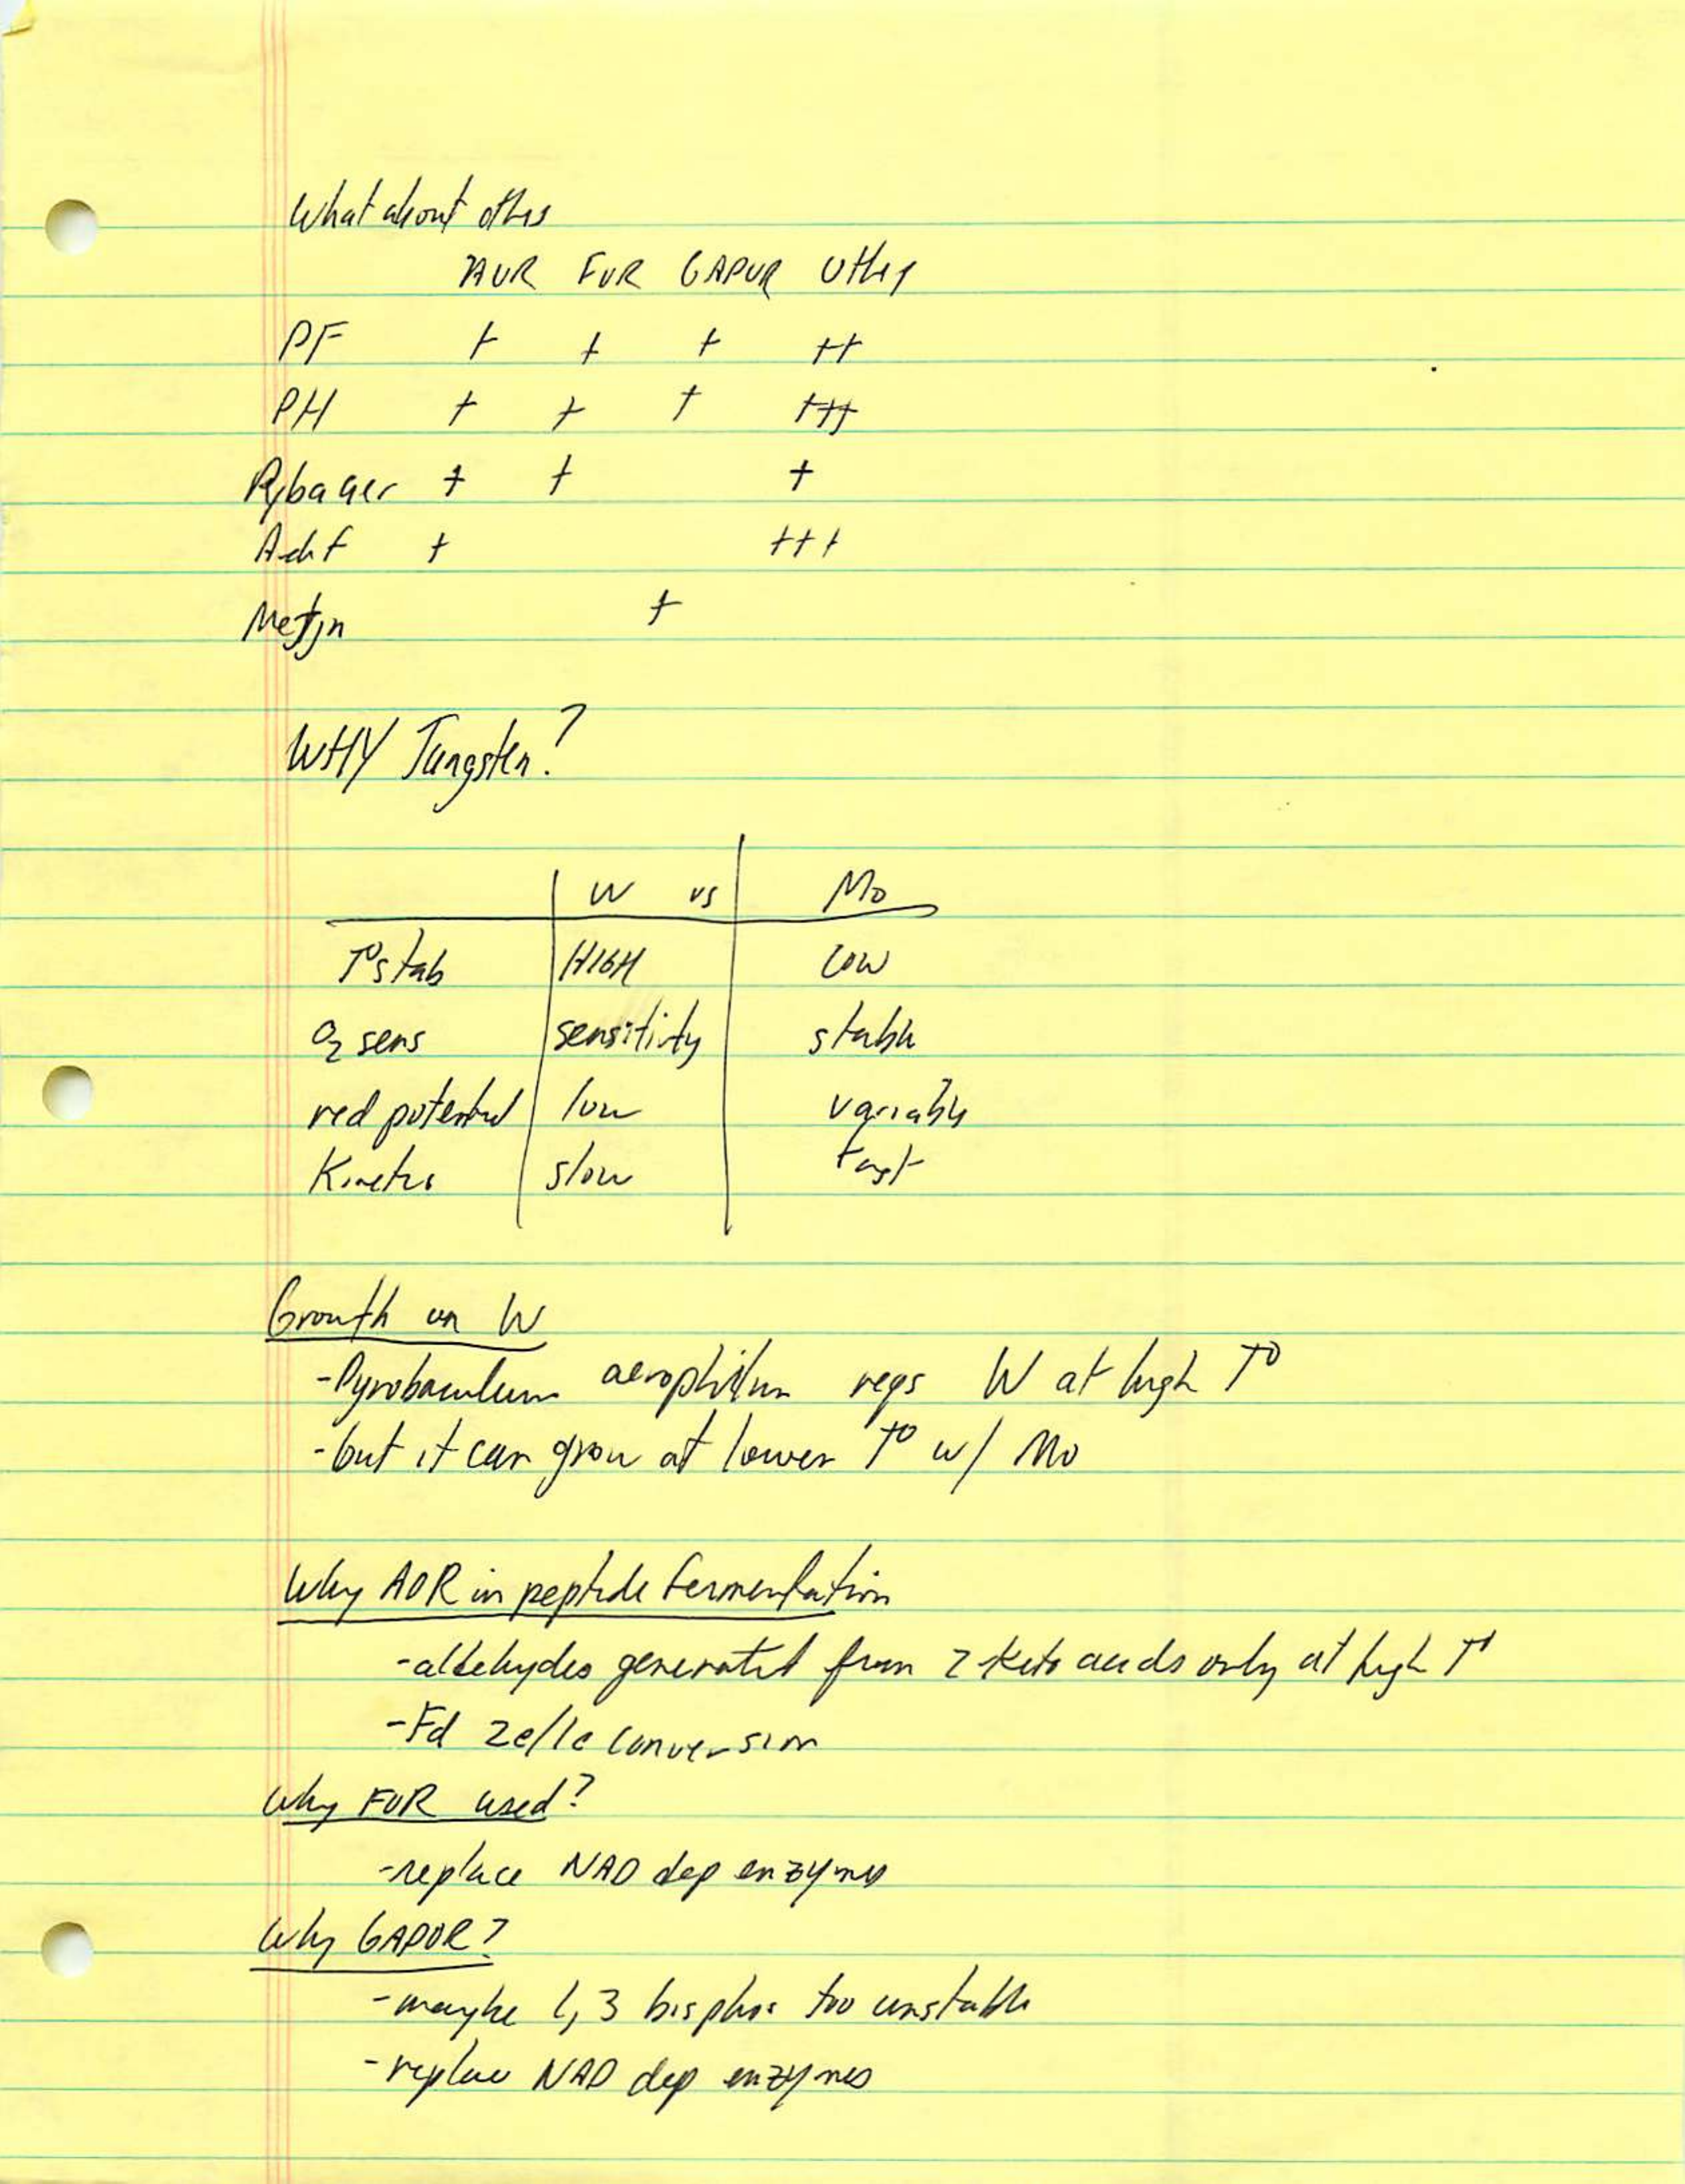 What about others
AOR FOR GAPOR Others
PF + + + ++
PH + + + +++
Pybaaer + + +
Achf + +++
Metjn +
WHY Tungsten?
W vs Mo
T° stab HIGH LOW
O2 sens sensitivity stable
red potential low variable
Kinetics slow fast
Growth on W
- Pyrobaculum aerophilum reqs W at high T°
- but it can grow at lower T° w/ Mo
Why AOR in peptide fermentation
- aldehydes generated from 2 keto acids only at high T°
- Fd 2e/1e conversion
Why FOR used?
- replace NAD dep enzymes
Why GAPOR?
- maybe 1,3 bisphos too unstable
- replace NAD dep enzymes